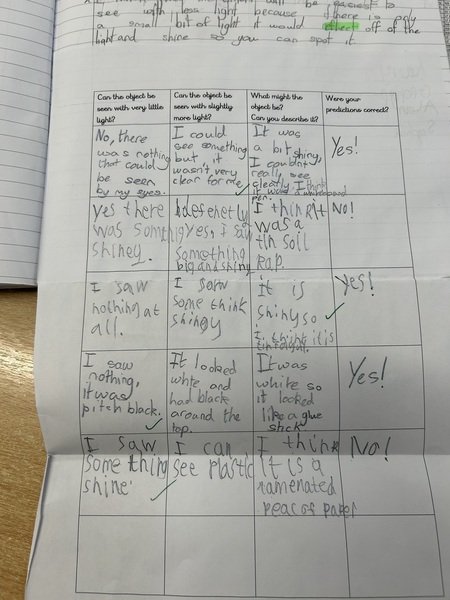 see with less light because if there is only
a small bit of light it would eflect off of the
light and shine so you can spot it.
Can the object be
seen with very little
light?
Can the object be
seen with slightly
more light?
What might the
object be?
Can you describe it?
Were your
predictions correct?
No, there
was nothing
that could
be seen
by my eyes.
I could
see something
but it
wasn't very
clear for me
It was
a bit shiny,
I couldn't
really see
clearly I think
it was a whiteboard
pen.
Yes!
yes there
was something
shiney.
yes, I saw
something
big and shiny
I think it
was a
tin foil
rap.
No!
I saw
nothing at
all.
I saw
some think
shingy
It is
shiny so
I think it is
Yes!
I saw
nothing,
it was
pitch black.
It looked
white and
had black
around the
top.
It was
white so
it looked
like a glue
stick
Yes!
I saw
some thing
shine
I can
see plastic
I think
It is a
ramenated
peac of paper
No!